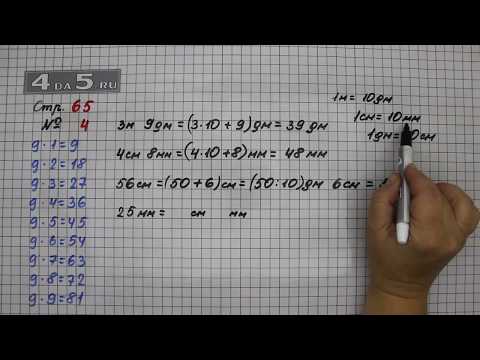 4 DA 5.RU
Стр. 65
№ 4
9 · 1 = 9
9 · 2 = 18
9 · 3 = 27
9 · 4 = 36
9 · 5 = 45
9 · 6 = 54
9 · 7 = 63
9 · 8 = 72
9 · 9 = 81
1м = 10дм
1см = 10мм
1дм = 0см
3м 9дм = (3·10+9)дм = 39 дм
4см 8мм = (4·10+8)мм = 48 мм
56см = (50+6)см = (50:10)дм 6см =
25мм = см мм